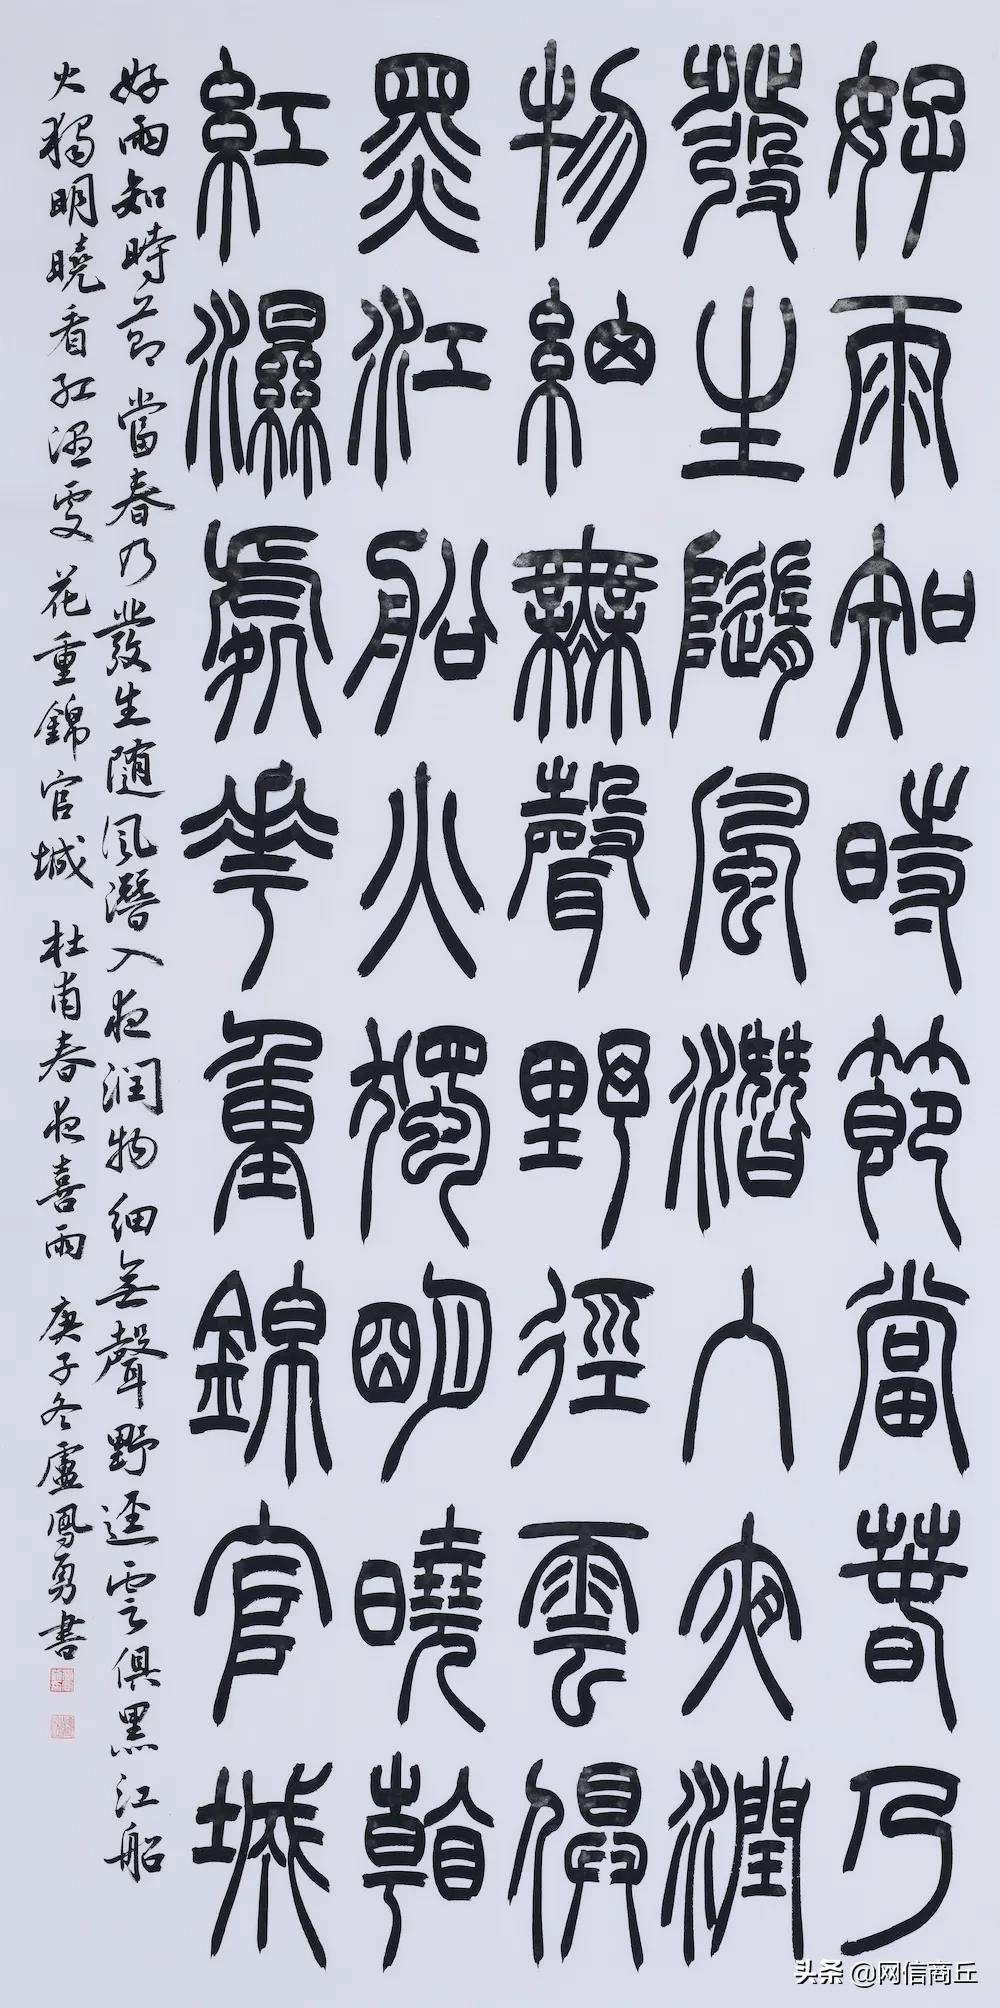 好雨知時節當春乃
發生隨風潛入夜潤
物細無聲野徑雲俱
黑江船火獨明曉看
紅濕處花重錦官城
好雨知時節當春乃發生随風潛入夜潤物細無聲野逕雲俱黑江船
火獨明曉看紅濕處花重錦官城 杜甫春夜喜雨 庚子冬盧鳳勇書
头条 @网信商丘